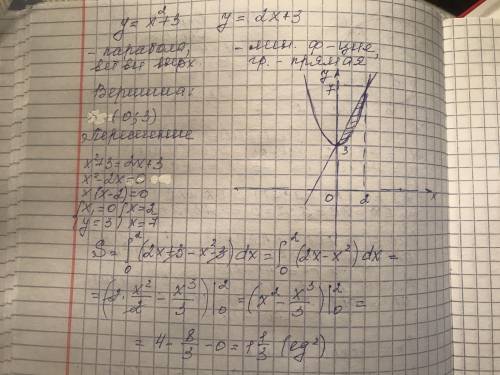 y = x² + 3      y = 2x + 3
- парабола,      - лин. ф-ция,
ветви вверх      гр. - прямая,
Вершина:
(0; 3)
Пересечение
x² + 3 = 2x + 3
x² - 2x = 0
x(x - 2) = 0
{x = 0 {x = 2
{y = 3 {x = 7
y
7
3
0 2 x
S = ∫₀² (2x + 3 - x² - 3) dx = ∫₀² (2x - x²) dx =
= (2 · x²/2 - x³/3) |₀² = (x² - x³/3) |₀² =
= 4 - 8/3 - 0 = 1 1/3 (ед²)